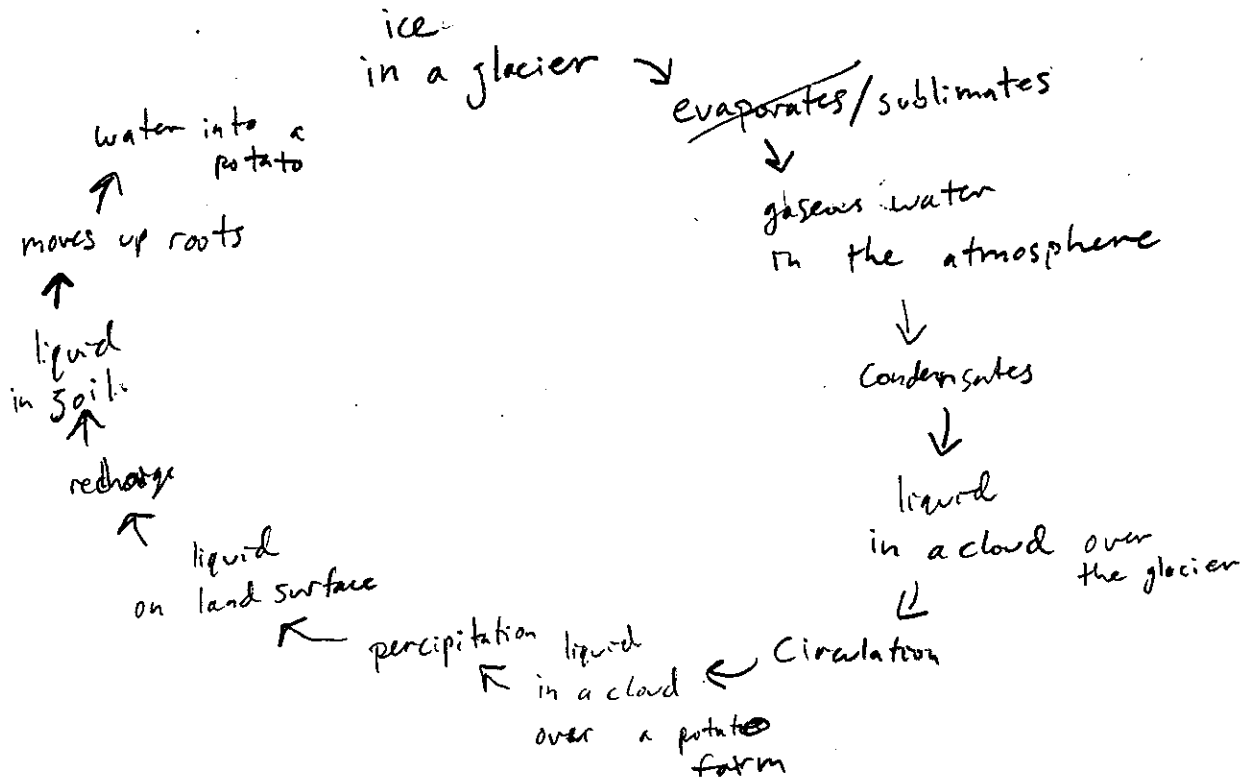 ice
in a glacier
evaporates/sublimates
gaseous water
in the atmosphere
Condensates
liquid
in a cloud over
the glacier
Circulation
liquid
in a cloud
over a potato
farm
percipitation
liquid
on land surface
recharge
liquid
in soil
moves up roots
water into a
potato